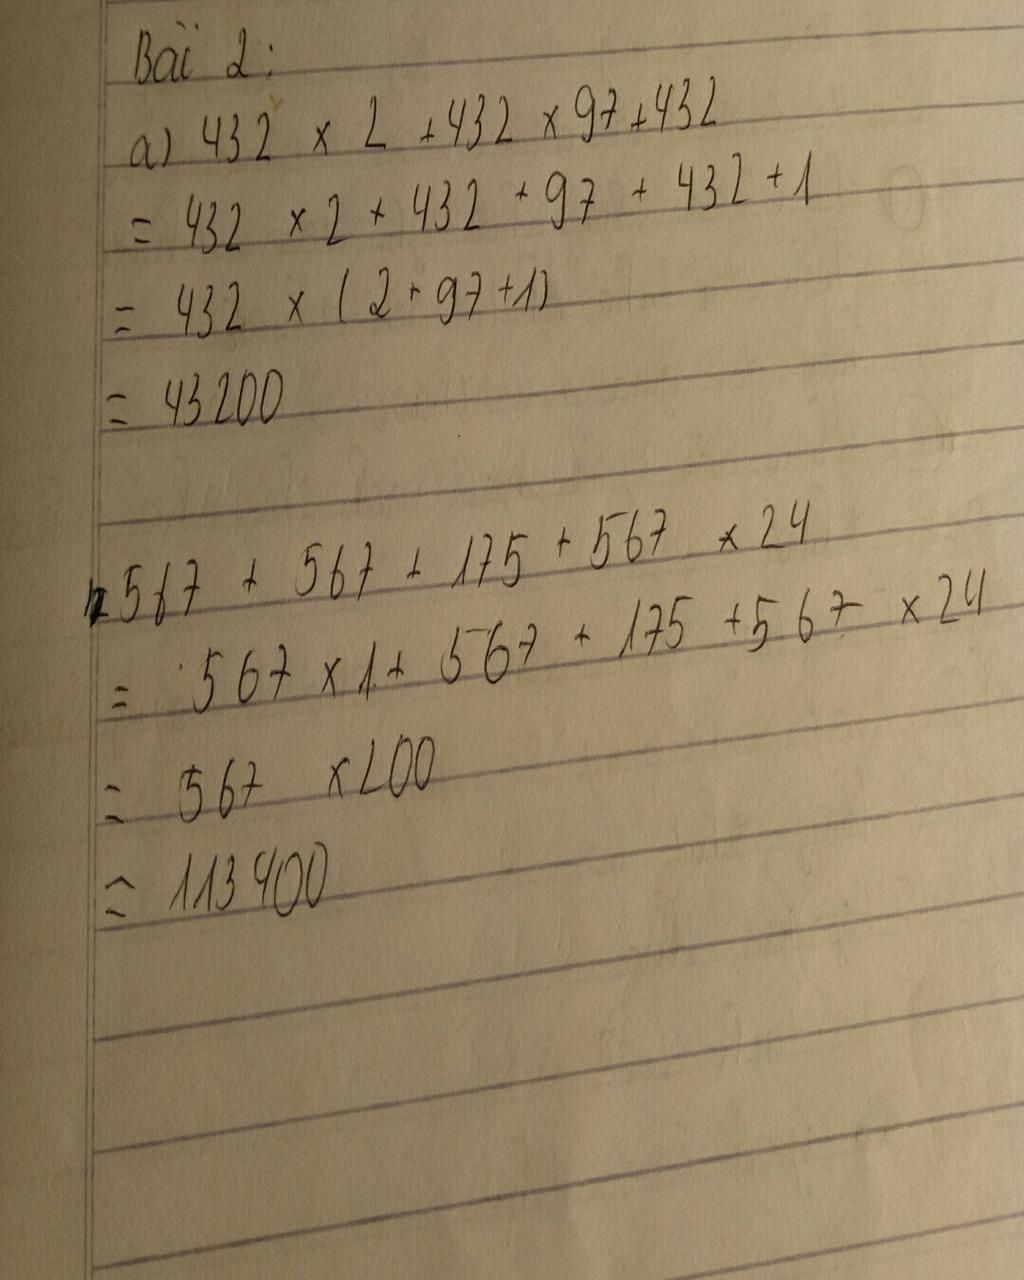 Bài 2:
a) 432 x 2 + 432 x 97 + 432
= 432 x 2 + 432 + 97 + 432 + 1
= 432 x (2 + 97 + 1)
= 43200
567 + 567 + 175 + 567 x 24
= 567 x 1 + 567 + 175 + 567 x 24
= 567 x 200
= 113400